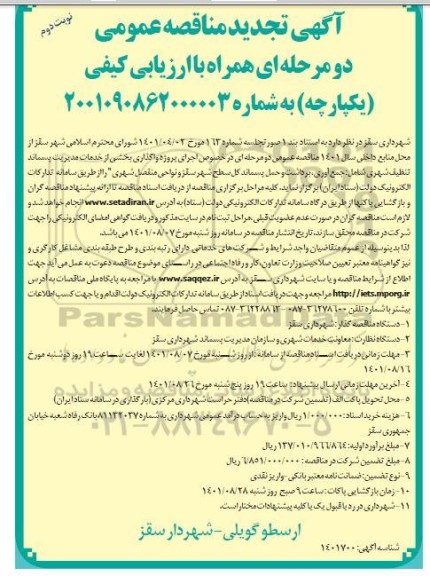 نوبت دوم
آگهی تجدید مناقصه عمومی
دو مرحله ای همراه با ارزیابی کیفی
(یکپارچه) به شماره ۲۰۰۱۰۹۰۸۶۲۰۰۰۰۰۳
شهرداری سقز در نظر دارد به استناد بند ۱ صورتجلسه شماره ۱۶۳ مورخ ۱۴۰۱/۰۴/۰۲ شورای محترم اسلامی شهر سقز از
محل منابع داخلی سال ۱۴۰۱ مناقصه عمومی دو مرحله ای در خصوص اجرای پروژه واگذاری بخشی از خدمات مدیریت پسماند
تنظیف شهری شامل: جمع آوری، برداشت و حمل پسماند کل سطح شهر سقز و نواحی منفصل شهری "را از طریق سامانه تدارکات
الکترونیک دولت (ستاد ایران) برگزار نماید. کلیه مراحل برگزاری مناقصه از دریافت اسناد مناقصه تا ارائه پیشنهاد مناقصه گران
و بازگشایی پاکتها از طریق درگاه سامانه تدارکات الکترونیکی دولت (ستاد) به آدرس www.setadiran.ir انجام خواهد شد و
لازم است مناقصه گران در صورت عدم عضویت قبلی، مراحل ثبت نام در سایت مذکور و دریافت گواهی امضای الکترونیکی را جهت
شرکت در مناقصه محقق سازند. تاریخ انتشار مناقصه در سامانه روز شنبه مورخ ۱۴۰۱/۰۸/۰۷ می باشد.
لذا بدینوسیله از عموم متقاضیان واجد شرایط و شرکت های خدماتی دارای رتبه بندی و طرح طبقه بندی مشاغل کارگری و
نیز گواهینامه معتبر تعیین صلاحیت وزارت تعاون، کار و رفاه اجتماعی در راستای موضوع مناقصه دعوت به عمل می آید جهت
اطلاع از شرایط مناقصه و یا سایت شهرداری سقز به آدرس www.saqqez.ir یا مراجعه به پایگاه ملی مناقصات به آدرس
http://iets.mporg.ir مراجعه و جهت دریافت اسناد از طریق سامانه تدارکات الکترونیک دولت اقدام و یا جهت کسب اطلاعات
بیشتر با شماره تلفن تماس حاصل فرمایند.
۱- دستگاه مناقصه گذار: شهرداری سقز
۲- دستگاه نظارت: معاونت خدمات شهری و سازمان مدیریت پسماند شهرداری سقز
۳- مهلت زمانی دریافت اسناد مناقصه از سامانه: از روز شنبه مورخ ۱۴۰۱/۰۸/۰۷ لغایت ساعت ۱۹ روز دوشنبه مورخ
۱۴۰۱/۰۸/۱۶
۴- آخرین مهلت زمانی ارسال پیشنهاد: تا ساعت ۱۹ روز پنج شنبه مورخ ۱۴۰۱/۰۸/۲۶
۵- محل تحویل پاکت الف (تضمین شرکت در مناقصه) دفتر حراست شهرداری مرکزی (بارگذاری در سامانه ستاد ایران)
۶- هزینه خرید اسناد: ۱/۰۰۰/۰۰۰ ریال واریز به حساب درآمد عمومی شهرداری به شماره بانک رفاه شعبه خیابان
جمهوری سقز
۷- مبلغ برآورد اولیه: ۱۳۷/۰۱۰/۹۶۶/۸۶۴ ریال
۸- مبلغ تضمین شرکت در مناقصه: ۶/۸۵۱/۰۰۰/۰۰۰ ریال
۹- نوع تضمین: ضمانت نامه معتبر بانکی - واریز نقدی
۱۰- زمان بازگشایی پاکات: ساعت ۹ صبح روز شنبه ۱۴۰۱/۰۸/۲۸
۱۱- شهرداری در رد یا قبول یک یا کلیه پیشنهادات مختار است.
ارسطو گویلی - شهردار سقز
شناسه آگهی: ۱۴۰۱۷۰۰
ParsNamadData
۰۲۱-۸۸۳۴۹۶۷۰-۵